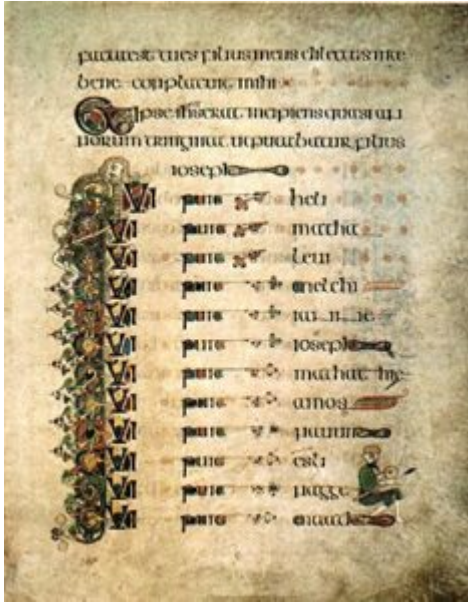 facta est tu es filius meus dilectus in te
bene conplacuit mihi
ipse ihs erat incipiens quasi an
norum triginta ut putabatur filius
ioseph
QUI fuit heli
QUI fuit mathat
QUI fuit leui
QUI fuit melchi
QUI fuit
QUI fuit ioseph
QUI fuit mathathie
QUI fuit amos
QUI fuit nauum
QUI fuit esli
QUI fuit nagge
QUI fuit